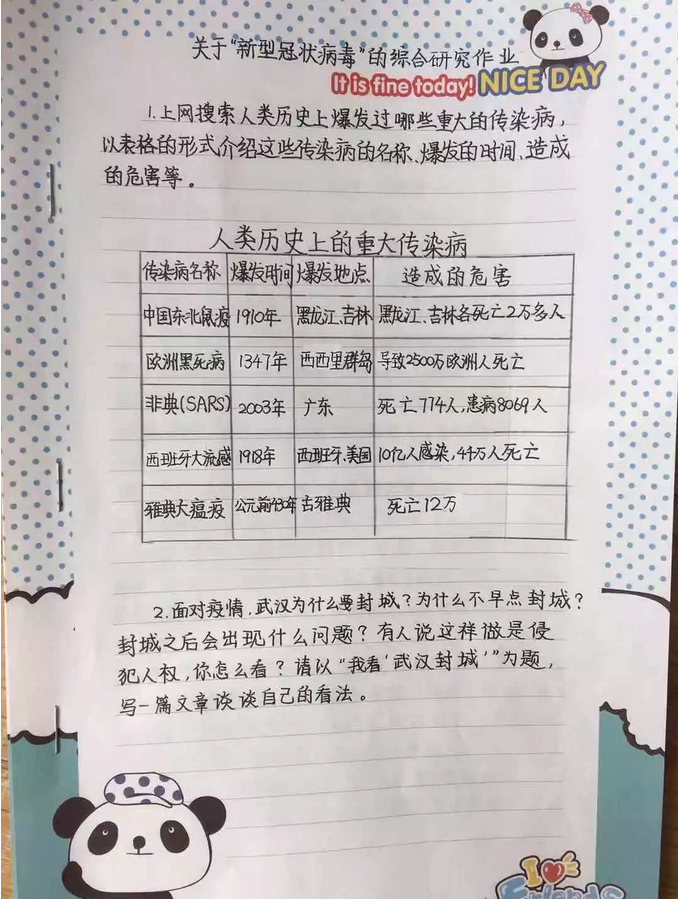 关于“新型冠状病毒”的综合研究作业
It is fine today! NICE DAY
1.上网搜索人类历史上爆发过哪些重大的传染病，
以表格的形式介绍这些传染病的名称、爆发的时间、造成
的危害等。
人类历史上的重大传染病
传染病名称 爆发时间 爆发地点 造成的危害
中国东北鼠疫 1910年 黑龙江、吉林 黑龙江、吉林各死亡2万多人
欧洲黑死病 1347年 西西里群岛 导致2500万欧洲人死亡
非典(SARS) 2003年 广东 死亡774人,患病8069人
西班牙大流感 1918年 西班牙、美国 10亿人感染,44万人死亡
雅典大瘟疫 公元前 古雅典 死亡12万
2.面对疫情,武汉为什么要封城?为什么不早点封城?
封城之后会出现什么问题?有人说这样做是侵
犯人权,你怎么看?请以“我看‘武汉封城’”为题,
写一篇文章谈谈自己的看法。
I
Friends